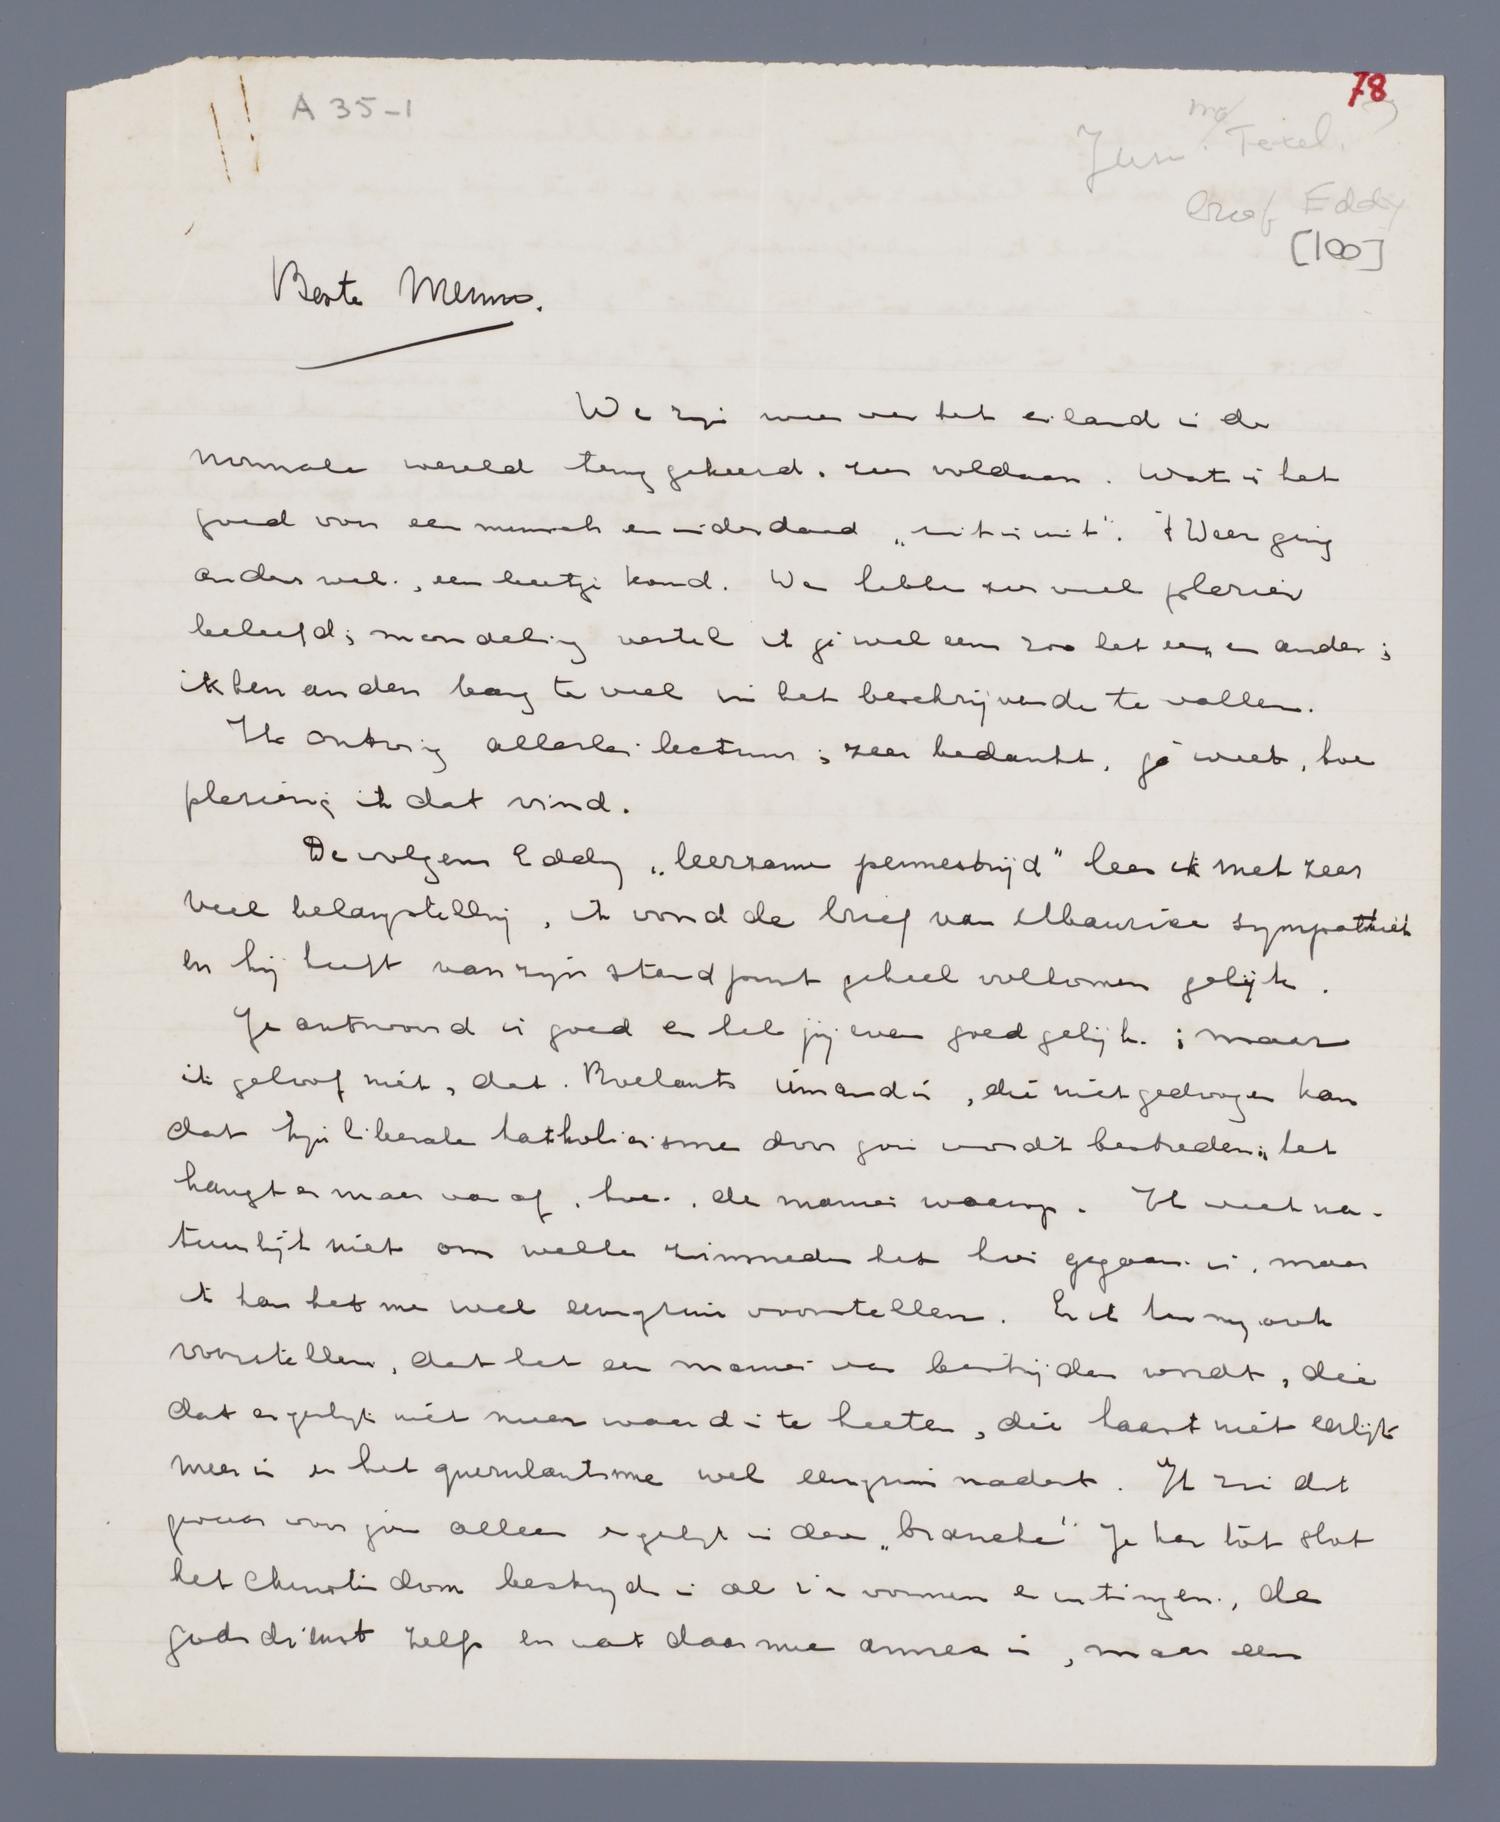 78
A 35-1
na Texel.
Juni
brief Eddy
[100]
Beste Menno.
We zijn weer van het eiland in de
normale wereld teruggekeerd, zeer voldaan. Wat is het
goed voor een mensch en inderdaad „uit is uit". 't Weer ging
anders wel, een beetje koud. We hebben zeer veel plezier
beleefd; mondeling vertel ik je wel eens zoo het een en ander;
ik ben anders bang te veel in het beschrijvende te vallen.
Ik ontving allerlei lectuur; zeer bedankt, je weet, hoe
plezierig ik dat vind.
De volgens Eddy „leerzame pennestrijd" lees ik met zeer
veel belangstelling, ik vond de brief van Maurice sympathiek
en hij heeft van zijn standpunt geheel volkomen gelijk.
Je antwoord is goed en heb jij even goed gelijk; maar
ik geloof niet, dat Roelants iemand is, die niet gedragen kan
dat zijn liberale katholicisme door jou wordt bestreden; het
hangt er maar van af, hoe, de manier waarop. Ik weet na-
tuurlijk niet om welke zinsneden het hier gegaan is, maar
ik kan het me wel eenigszins voorstellen. En ik kan mij ook
voorstellen, dat het een manier van bestrijden wordt, die
dat eigenlijk niet meer waard is te heeten, die haast niet eerlijk
meer is en het querulantisme wel eenigszins nadert. Ik zei dat
gevaar voor jou alleen eigenlijk in deze „branche" Je hebt tot slot
het Christendom bestreden in al z'n vormen en uitingen, de
godsdienst zelf en wat daarmee annex is, maar een